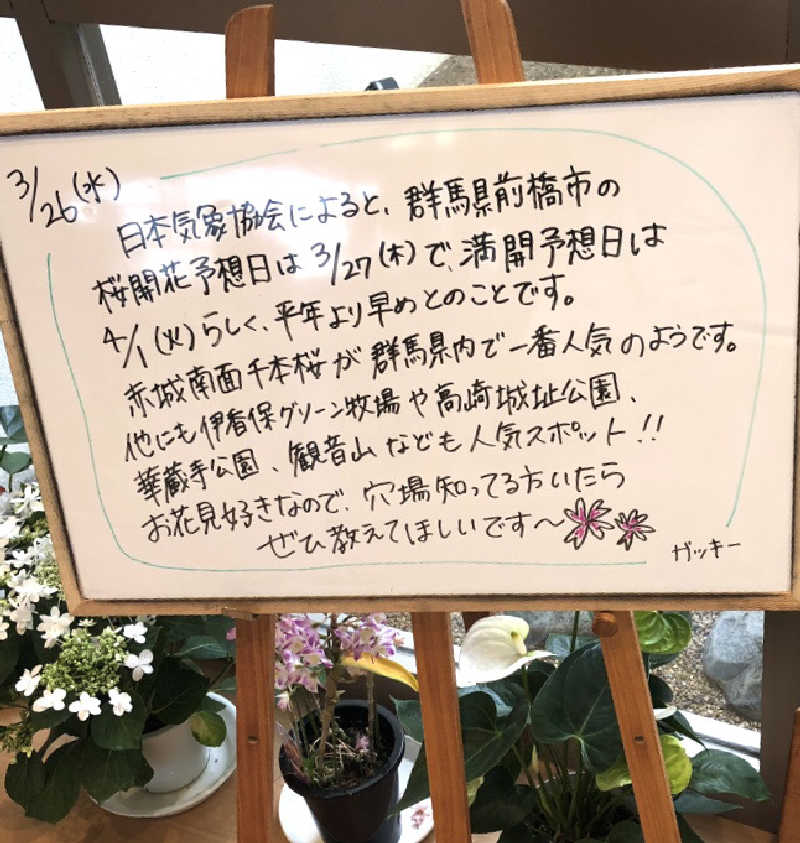 3/26(水)
日本気象協会によると、群馬県前橋市の
桜開花予想日は3/27(木)で、満開予想日は
4/1(火)らしく、平年より早めとのことです。
赤城南面千本桜が群馬県内で一番人気のようです。
他にも伊香保グリーン牧場や高崎城址公園、
華蔵寺公園、観音山なども人気スポット!!
お花見好きなので、穴場知ってる方いたら
ぜひ教えてほしいです〜
ガッキー